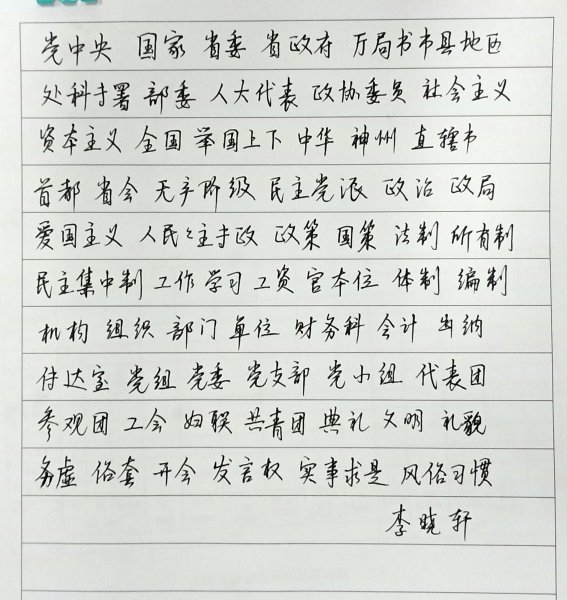 党中央 国家 省委 省政府 万局书市县地区
处科专署 部委 人大代表 政协委员 社会主义
资本主义 全国 举国上下 中华 神州 直辖市
首都 省会 无产阶级 民主党派 政治 政局
爱国主义 人民民主专政 政策 国策 法制 所有制
民主集中制 工作 学习 工资 官本位 体制 编制
机构 组织 部门 单位 财务科 会计 出纳
传达室 党组 党委 党支部 党小组 代表团
参观团 工会 妇联 共青团 典礼 文明 礼貌
务虚 俗套 开会 发言权 实事求是 风俗习惯
李晓轩